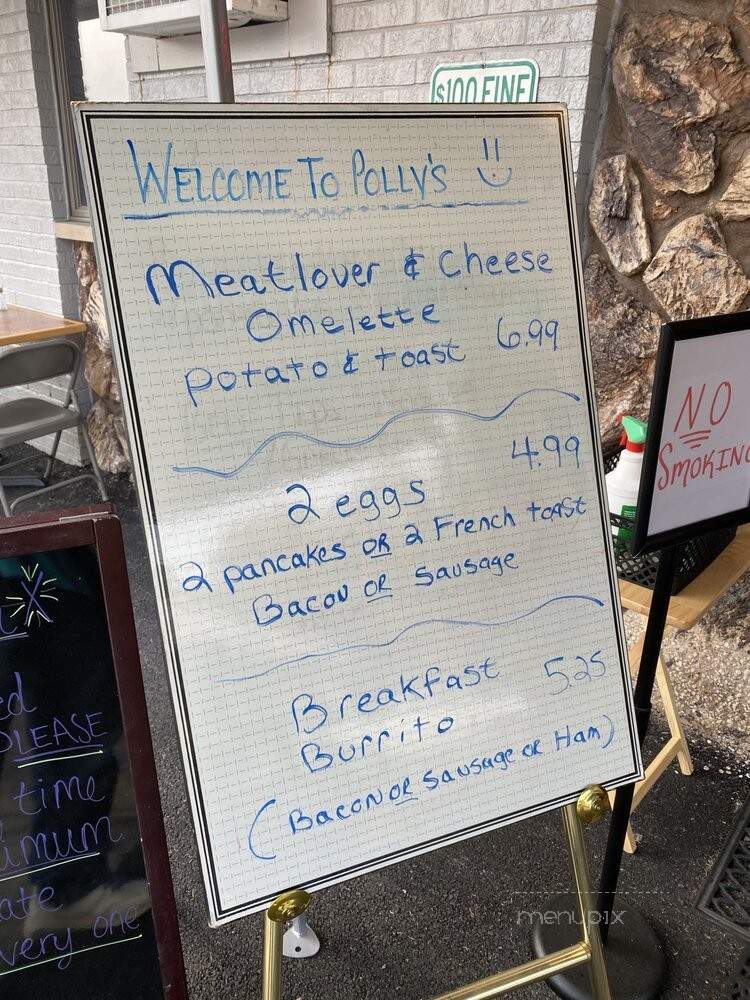 $100 FINE
WELCOME TO POLLY'S
Meatlover & Cheese
Omelette
Potato & toast 6.99
4.99
2 eggs
2 pancakes OR 2 French toast
Bacon OR Sausage
Breakfast 5.25
Burrito
(Bacon OR Sausage OR Ham)
NO
SMOKING
PLEASE
time
very one
menupix